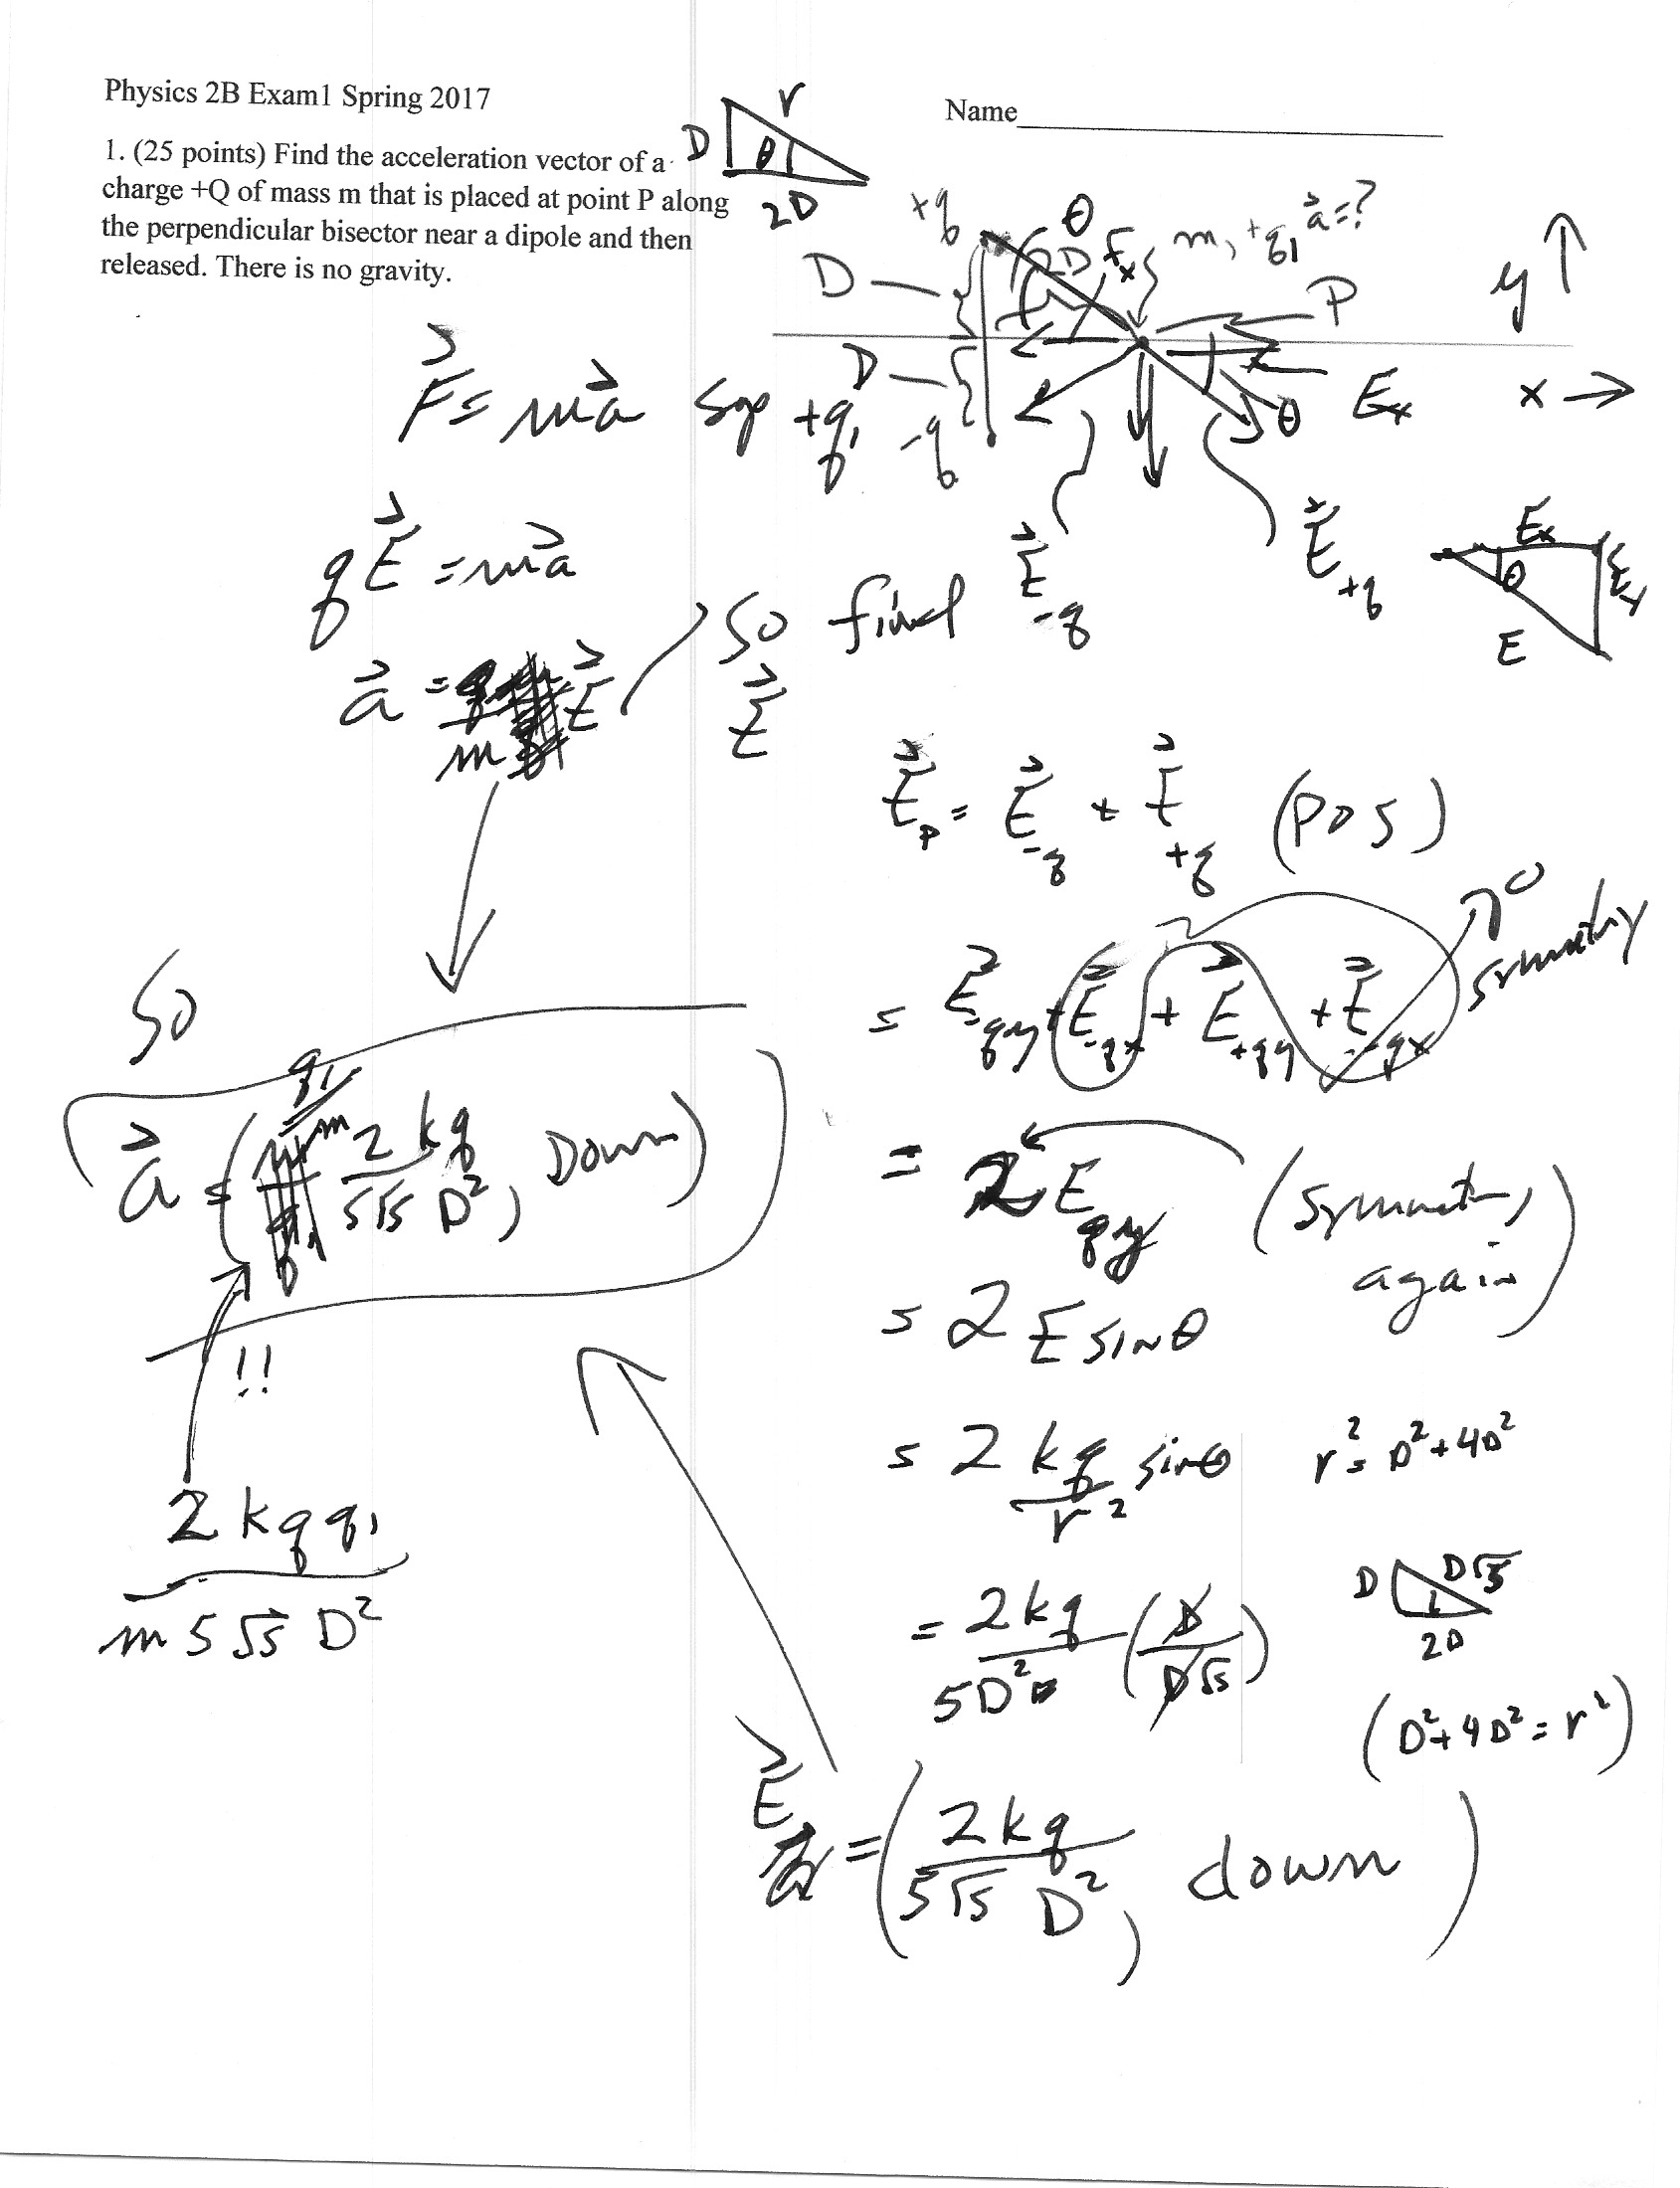 Physics 2B Exam1 Spring 2017
Name
1. (25 points) Find the acceleration vector of a
charge +Q of mass m that is placed at point P along
the perpendicular bisector near a dipole and then
released. There is no gravity.
D r θ 2D
+q θ 2D m, +q₁ a⃗=?
D P y
D Eₓ x
-q θ
F⃗ = ma⃗ +q₁
qE⃗ = ma⃗
E⃗-q E⃗+q
Eₓ θ E
a⃗ = q/m E⃗
so find E⃗
E⃗p = E⃗-q + E⃗+q (POS)
= E⃗-qy + E⃗-qx + E⃗+qy + E⃗+qx 0 symmetry
= 2 Eqy (symmetry again)
= 2 E sin θ
= 2 kq/r² sin θ r² = D² + 4D²
= 2kq/5D² (D/D√5)
D D√5 2D
(D² + 4D² = r²)
E⃗ = (2kq/5√5 D², down)
so
a⃗ = (q₁/m 2kq/5√5 D², Down)
!!
2kqq₁
m5√5 D²